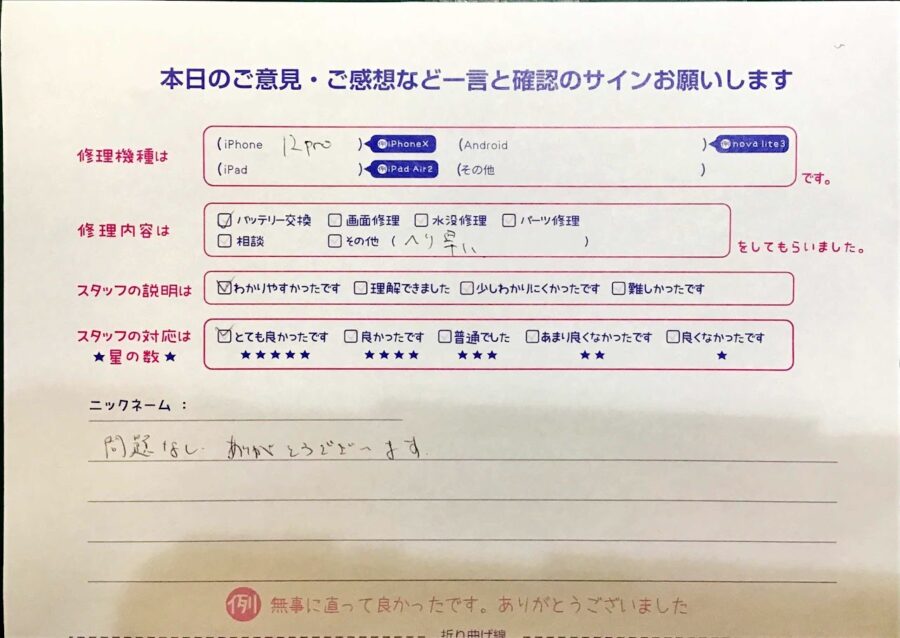 本日のご意見・ご感想など一言と確認のサインお願いします
修理機種は
(iPhone 12pro ) 例iPhoneX (Android ) 例nova lite3
(iPad ) 例iPad Air2 (その他 )
です。
修理内容は
バッテリー交換 画面修理 水没修理 パーツ修理
相談 その他 ( へり早い )
をしてもらいました。
スタッフの説明は わかりやすかったです 理解できました 少しわかりにくかったです 難しかったです
スタッフの対応は とても良かったです 良かったです 普通でした あまり良くなかったです 良くなかったです
★星の数★ ★★★★★ ★★★★ ★★★ ★★ ★
ニックネーム：
問題なし. ありがとうございます.
例 無事に直って良かったです。ありがとうございました
折り曲げ線